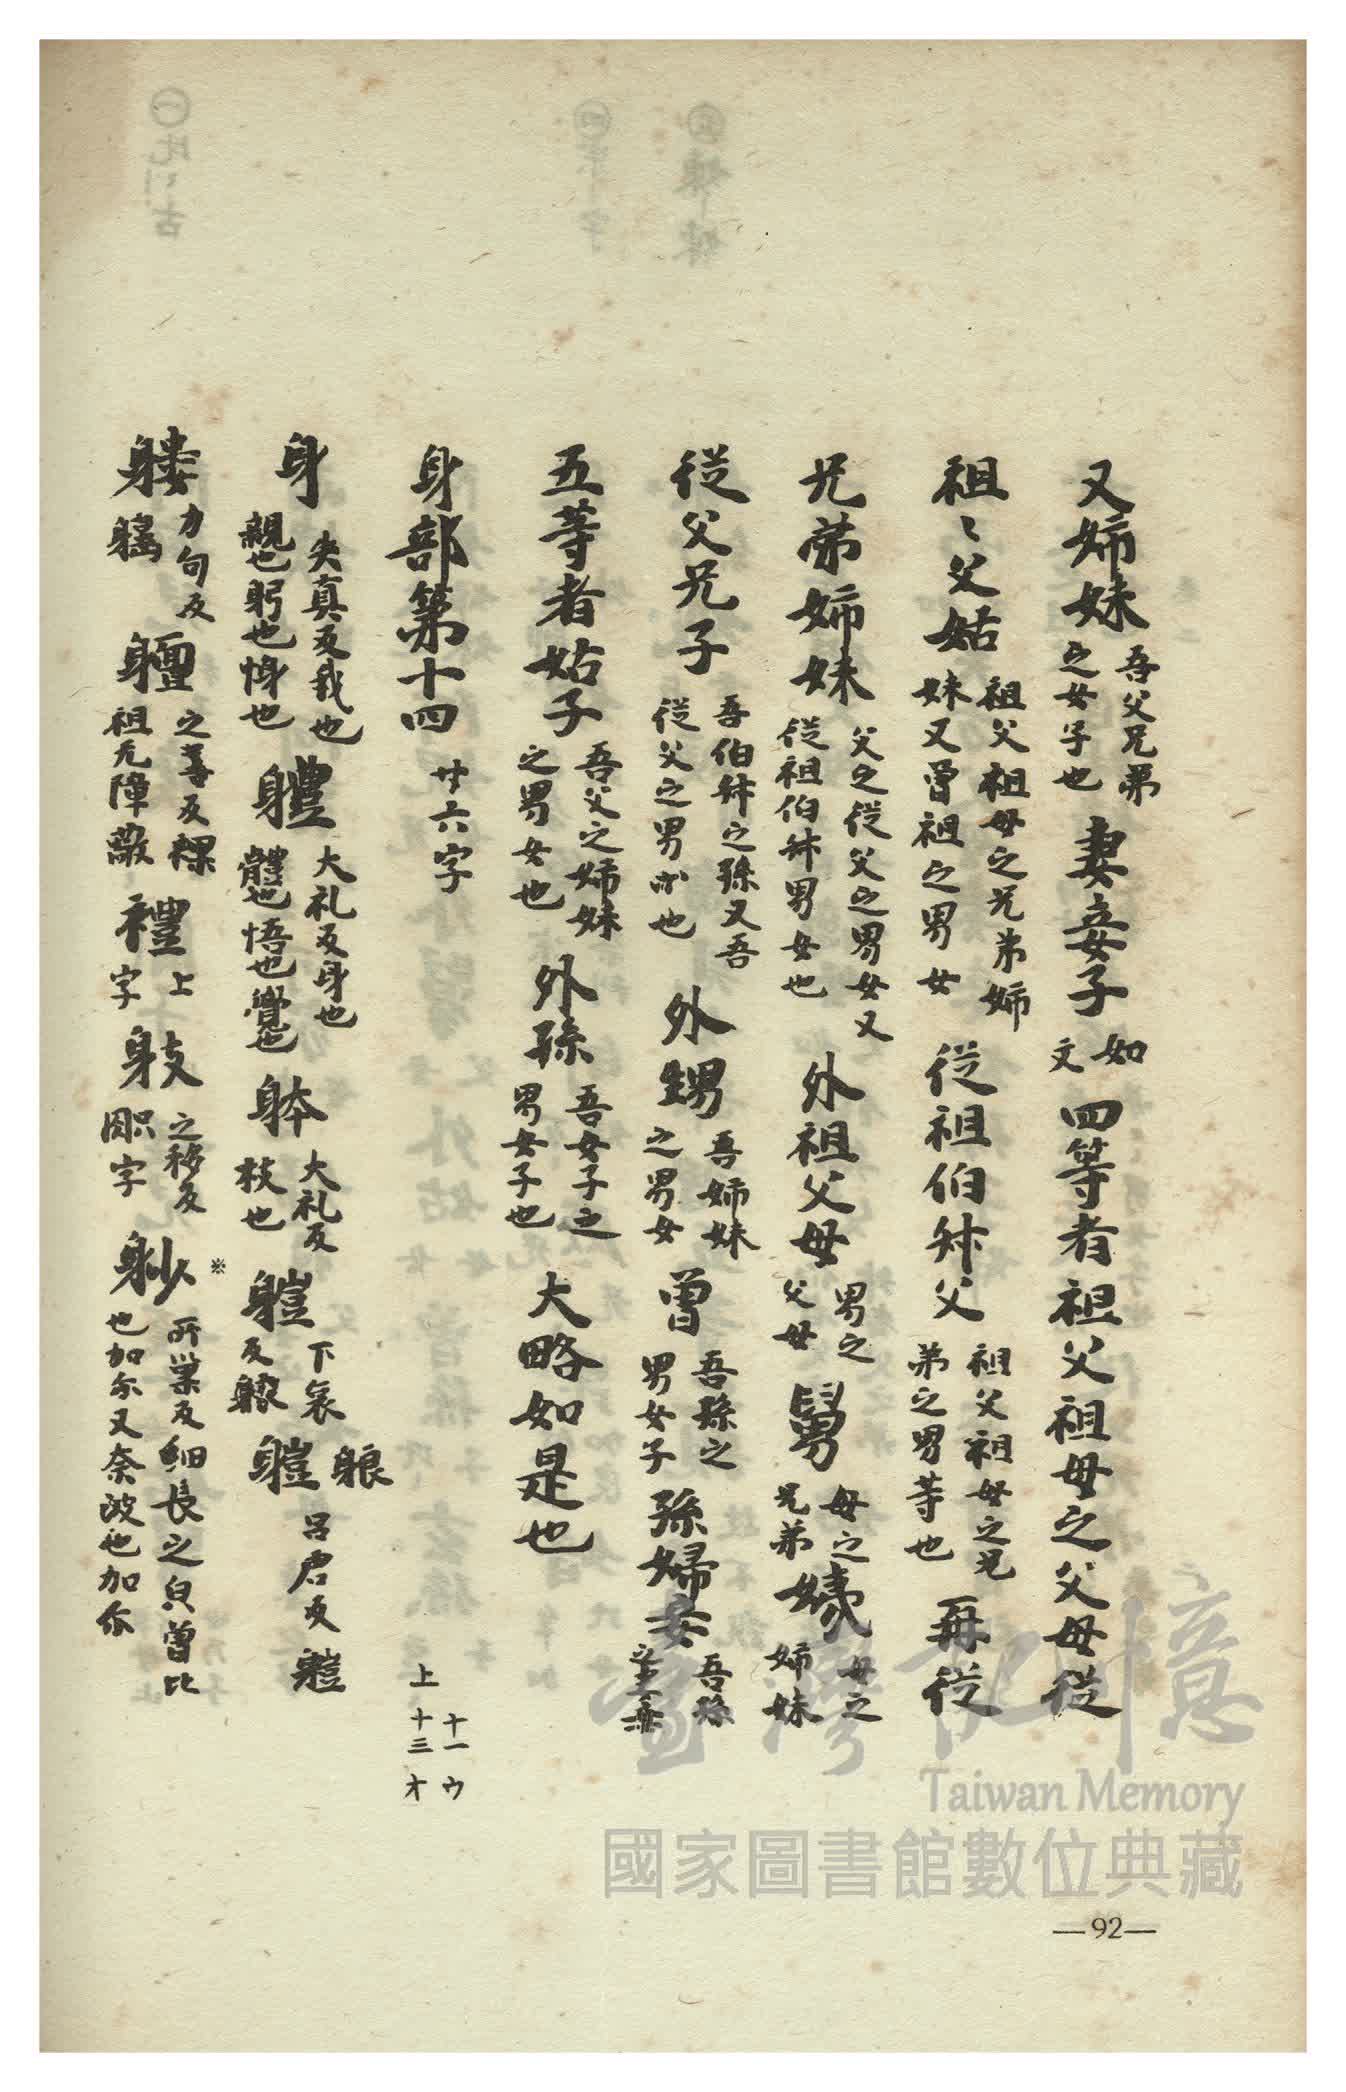 又姉妹 吾父兄弟之女子也 妻妾子 如文 四等者祖父祖母之父母従
祖〻父姑 祖父祖母之兄弟姉妹又曾祖之男女 従祖伯舛父 祖父祖母之兄弟之男等也 再従
兄弟姉妹 父之従父之男女又従祖伯舛男女也 外祖父母 男之父母 舅 母之兄弟 姨 母之姉妹
従父兄子 吾伯舛之孫又吾従父之男亦也 外甥 吾姉妹之男女 曾 吾孫之男女子 孫婦妾 吾孫
五等者姑子 吾父之姉妹之男女也 外孫 吾女子之男女子也 大略如是也
身部第十四 廿六字
十一ウ
上十三才
身 失真反我也親也躬也㑗也 軆 大礼反身也體也悟也覺也 躰 大礼反枝也 下哀反 躴 呂君反
躿 力句反 之善反裸祖无障蔽 禮 上字 躯 之移反職字
※ 所巣反細長之皃曽比也加尓又奈波也加尓
臺灣記憶
Taiwan Memory
國家圖書館數位典藏
—92—